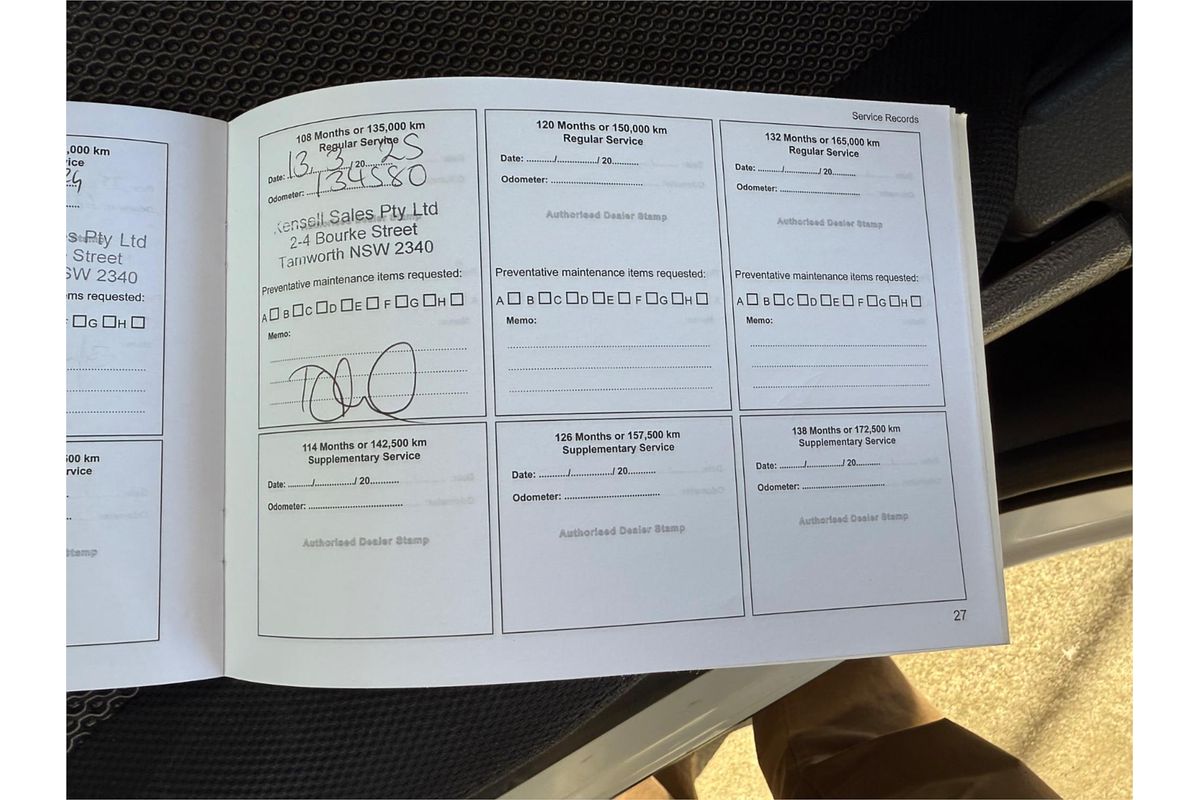 Service Records
,000 km
vice
24
s Pty Ltd
Street
SW 2340
ms requested:
F □G □H □
500 km
rvice
Stamp
108 Months or 135,000 km
Regular Service
Date: 13. / 3. / 20 25
Odometer: 134580
Kensell Sales Pty Ltd
2-4 Bourke Street
Tamworth NSW 2340
Preventative maintenance items requested:
A □ B □ C □ D □ E □ F □ G □ H □
Memo:
120 Months or 150,000 km
Regular Service
Date: ........../................/ 20..........
Odometer: ...................................
Authorised Dealer Stamp
Preventative maintenance items requested:
A □ B □ C □ D □ E □ F □ G □ H □
Memo:
132 Months or 165,000 km
Regular Service
Date: ........../................/ 20..........
Odometer: ...................................
Authorised Dealer Stamp
Preventative maintenance items requested:
A □ B □ C □ D □ E □ F □ G □ H □
Memo:
114 Months or 142,500 km
Supplementary Service
Date: ........../................/ 20..........
Odometer: ...................................
Authorised Dealer Stamp
126 Months or 157,500 km
Supplementary Service
Date: ........../................/ 20..........
Odometer: ...................................
Authorised Dealer Stamp
138 Months or 172,500 km
Supplementary Service
Date: ........../................/ 20..........
Odometer: ...................................
Authorised Dealer Stamp
27